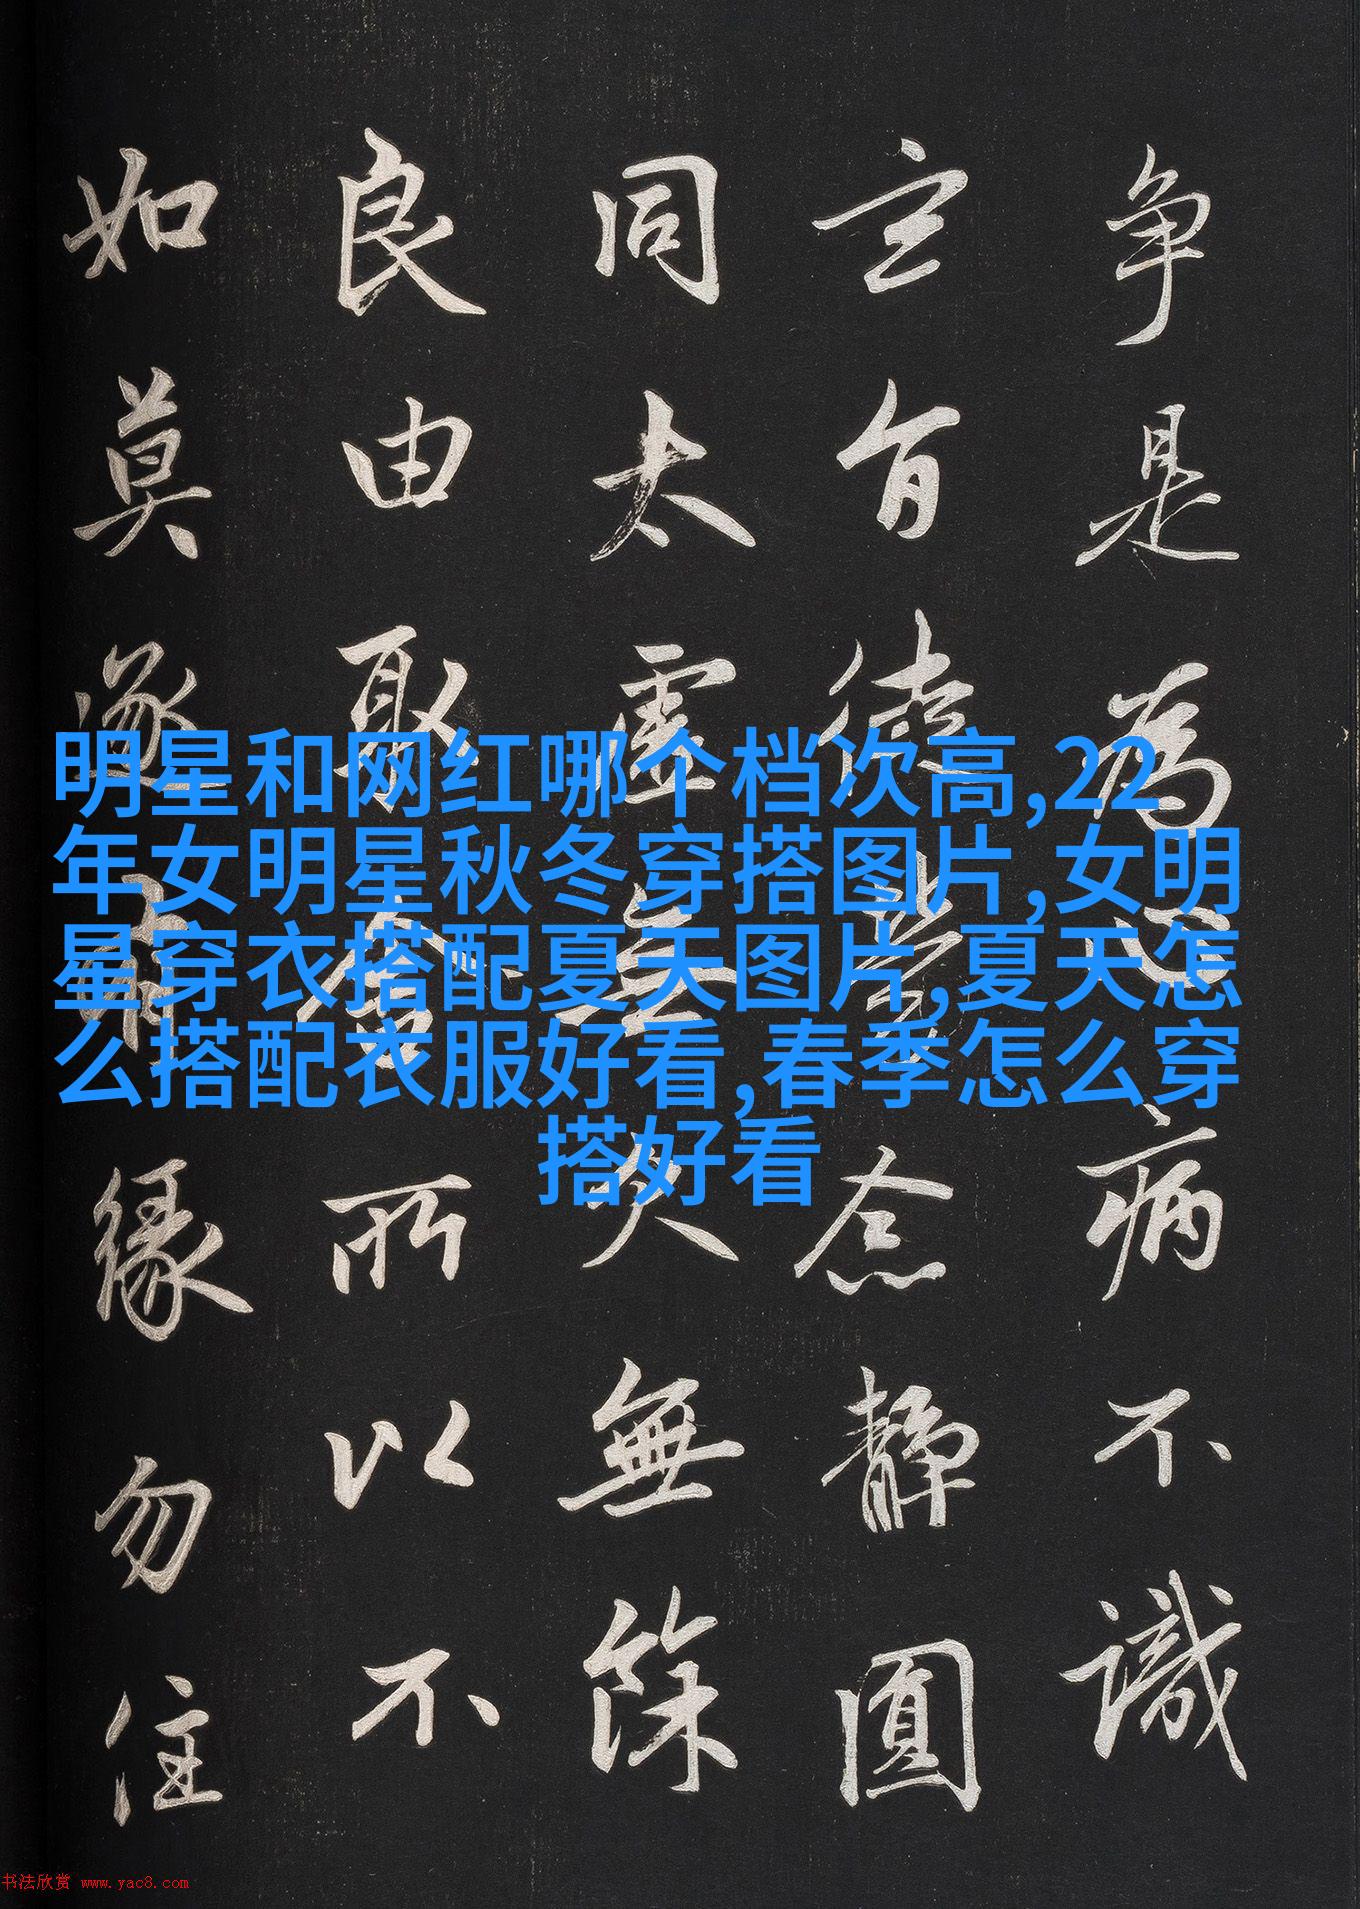 争是為心病不識
玄旨徒勞念静圓
同太虚無欠無餘
良由取舍所以不
如莫逐有緣勿住
明星和网红哪个档次高,22
年女明星秋冬穿搭图片,女明
星穿衣搭配夏天图片,夏天怎
么搭配衣服好看,春季怎么穿
搭好看
书法欣赏 www.yac8.com